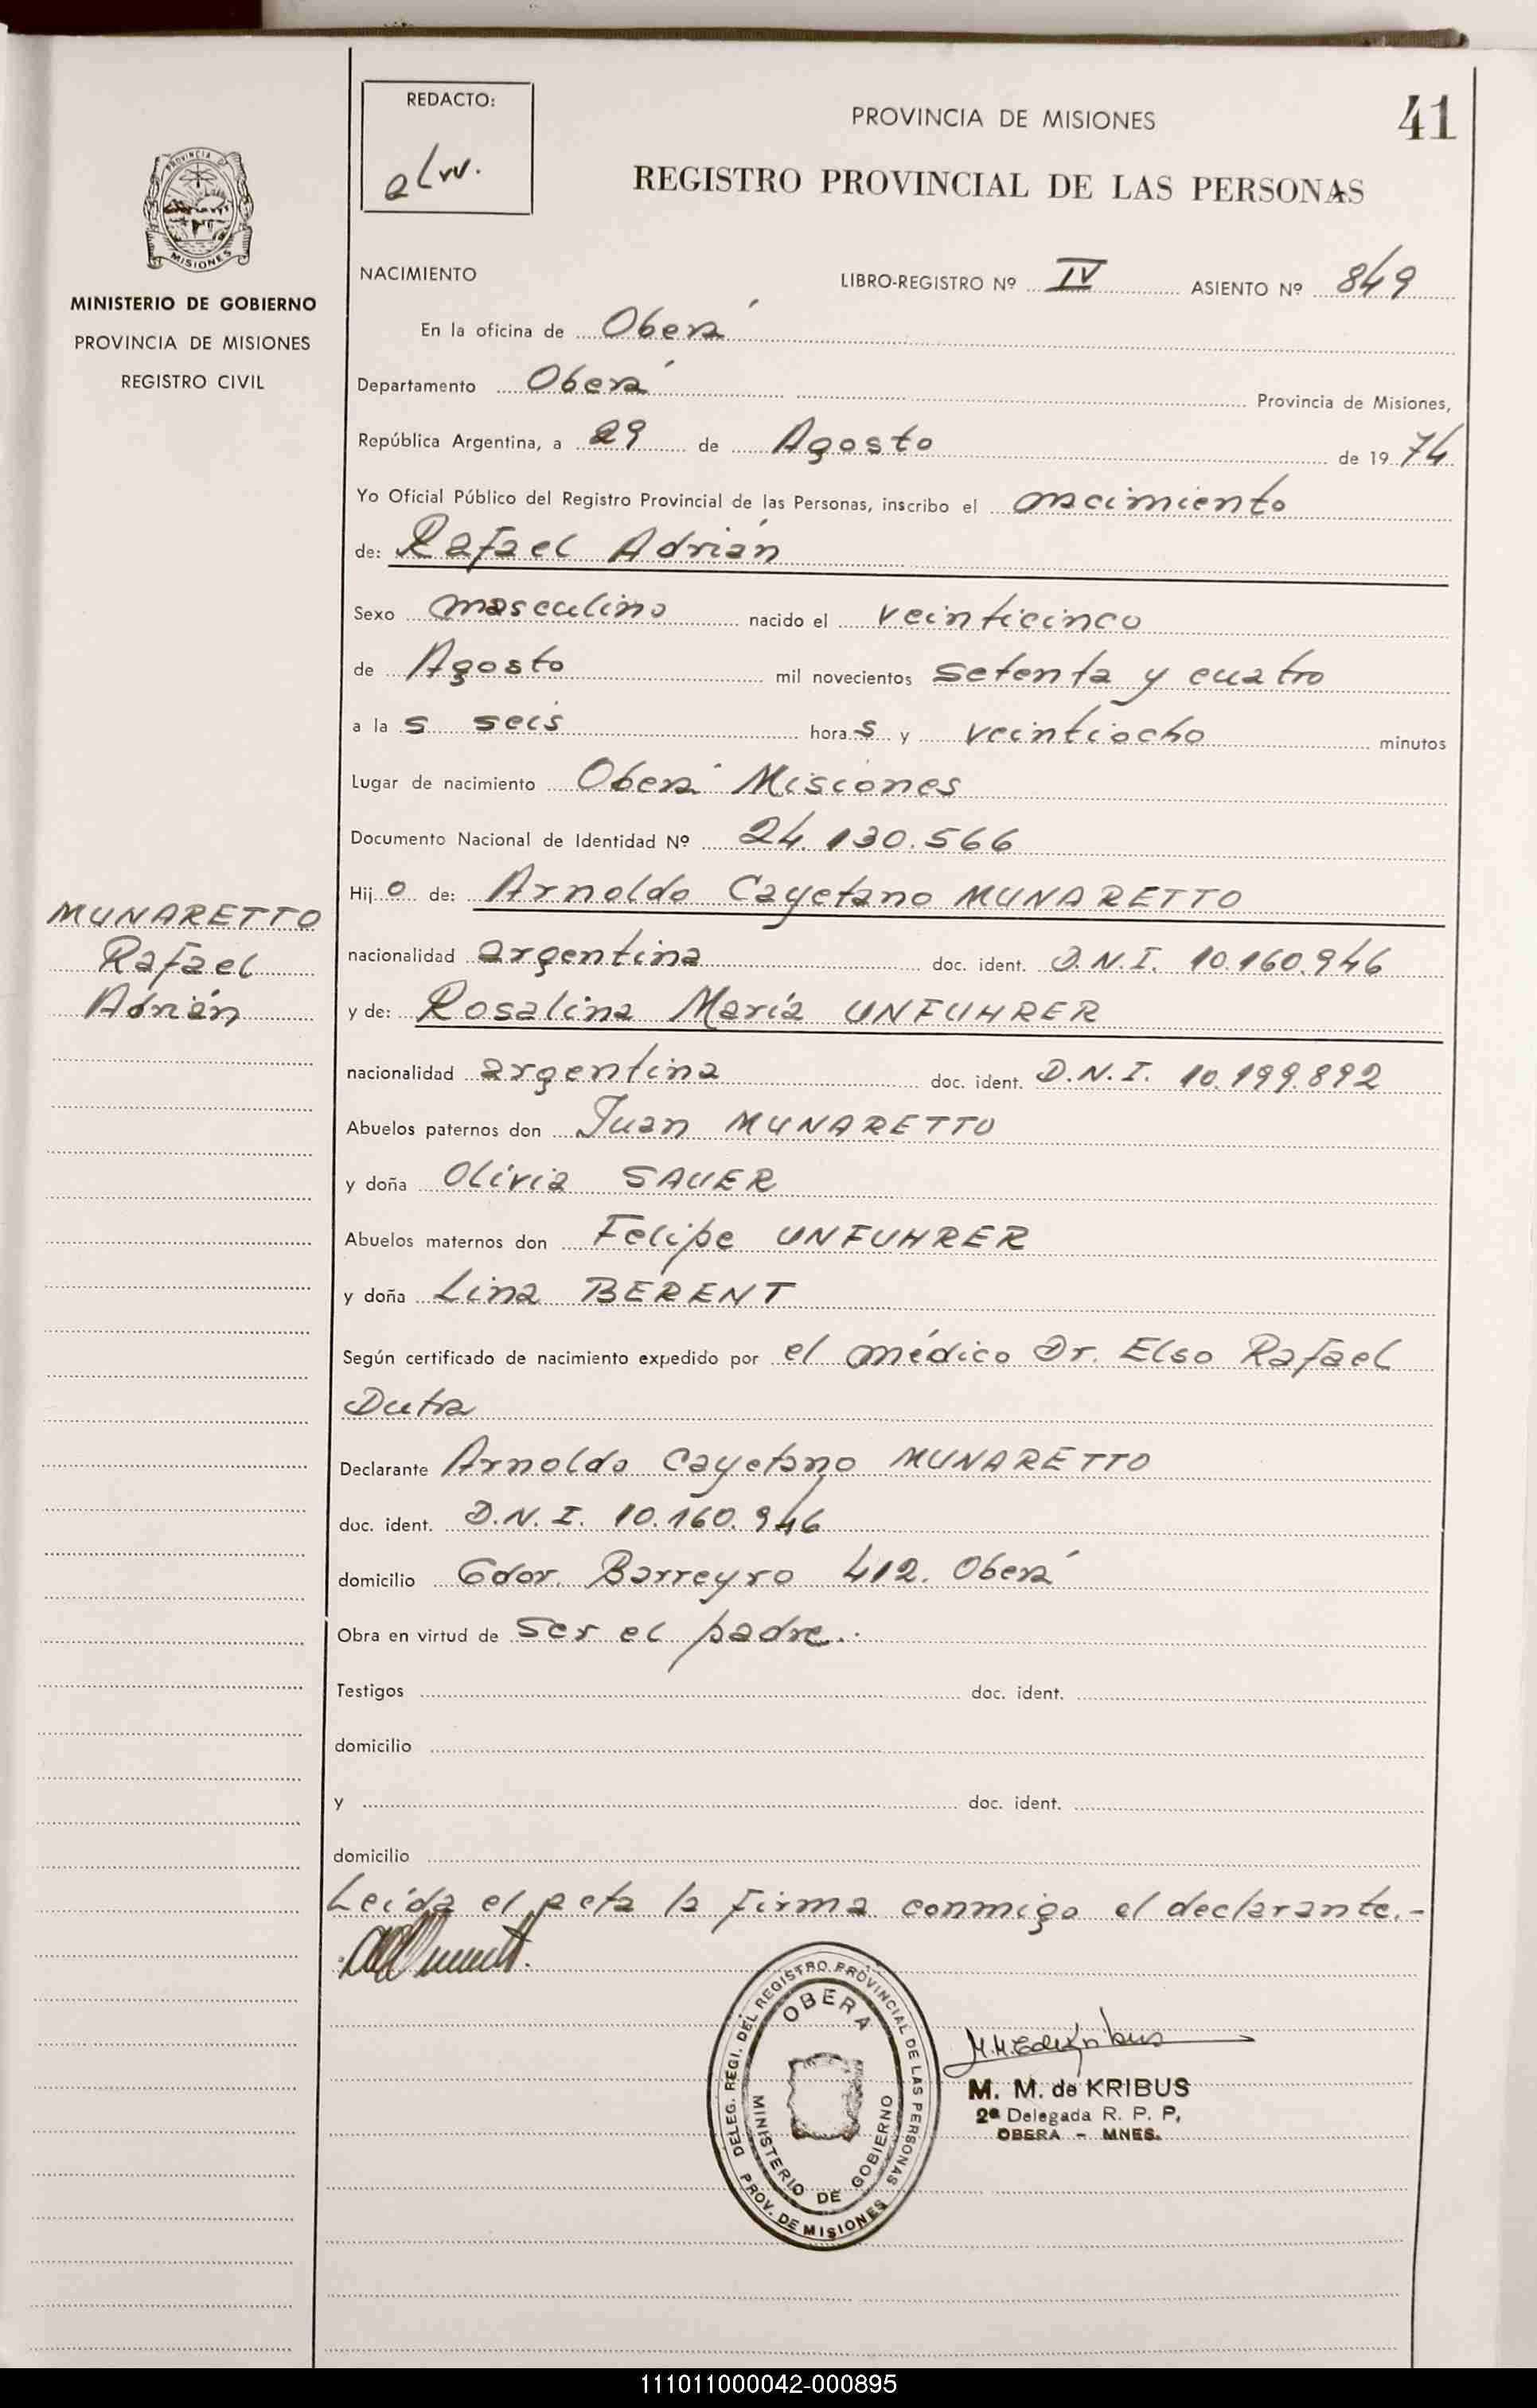 REDACTO:
PROVINCIA DE MISIONES
41
REGISTRO PROVINCIAL DE LAS PERSONAS
PROVINCIA
MISIONES
MINISTERIO DE GOBIERNO
PROVINCIA DE MISIONES
REGISTRO CIVIL
NACIMIENTO LIBRO-REGISTRO Nº IV ASIENTO Nº 849
En la oficina de Oberá
Departamento Oberá Provincia de Misiones,
República Argentina, a 29 de Agosto de 19 74
Yo Oficial Público del Registro Provincial de las Personas, inscribo el nacimiento
de: Rafael Adrián
Sexo masculino nacido el veinticinco
de Agosto mil novecientos setenta y cuatro
a la s seis hora s y veintiocho minutos
Lugar de nacimiento Oberá Misiones
Documento Nacional de Identidad Nº 24.130.566
Hij o de: Arnoldo Cayetano MUNARETTO
MUNARETTO
Rafael
Adrián
nacionalidad argentina doc. ident. D.N.I. 10.160.946
y de: Rosalina María UNFUHRER
nacionalidad argentina doc. ident. D.N.I. 10.199.892
Abuelos paternos don Juan MUNARETTO
y doña Olivia SAUER
Abuelos maternos don Felipe UNFUHRER
y doña Lina BERENT
Según certificado de nacimiento expedido por el médico Dr. Elso Rafael
Dutra
Declarante Arnoldo Cayetano MUNARETTO
doc. ident. D.N.I. 10.160.946
domicilio Gdor. Barreyro 412. Oberá
Obra en virtud de ser el padre..
Testigos doc. ident.
domicilio
y doc. ident.
domicilio
Leída el acta la firma conmigo el declarante.-
DELEG. REGI. DEL REGISTRO PROVINCIAL DE LAS PERSONAS
OBERA
MINISTERIO DE GOBIERNO
PROV. DE MISIONES
M. M. de KRIBUS
2ª Delegada R. P. P.
OBERA - MNES.
111011000042-000895